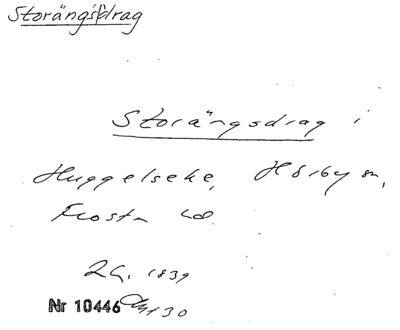 Storängsdrag
Storängsdrag i
Huggelseke, Hörby sn,
Frosta hd.
LG. 1839
Nr 10446 30